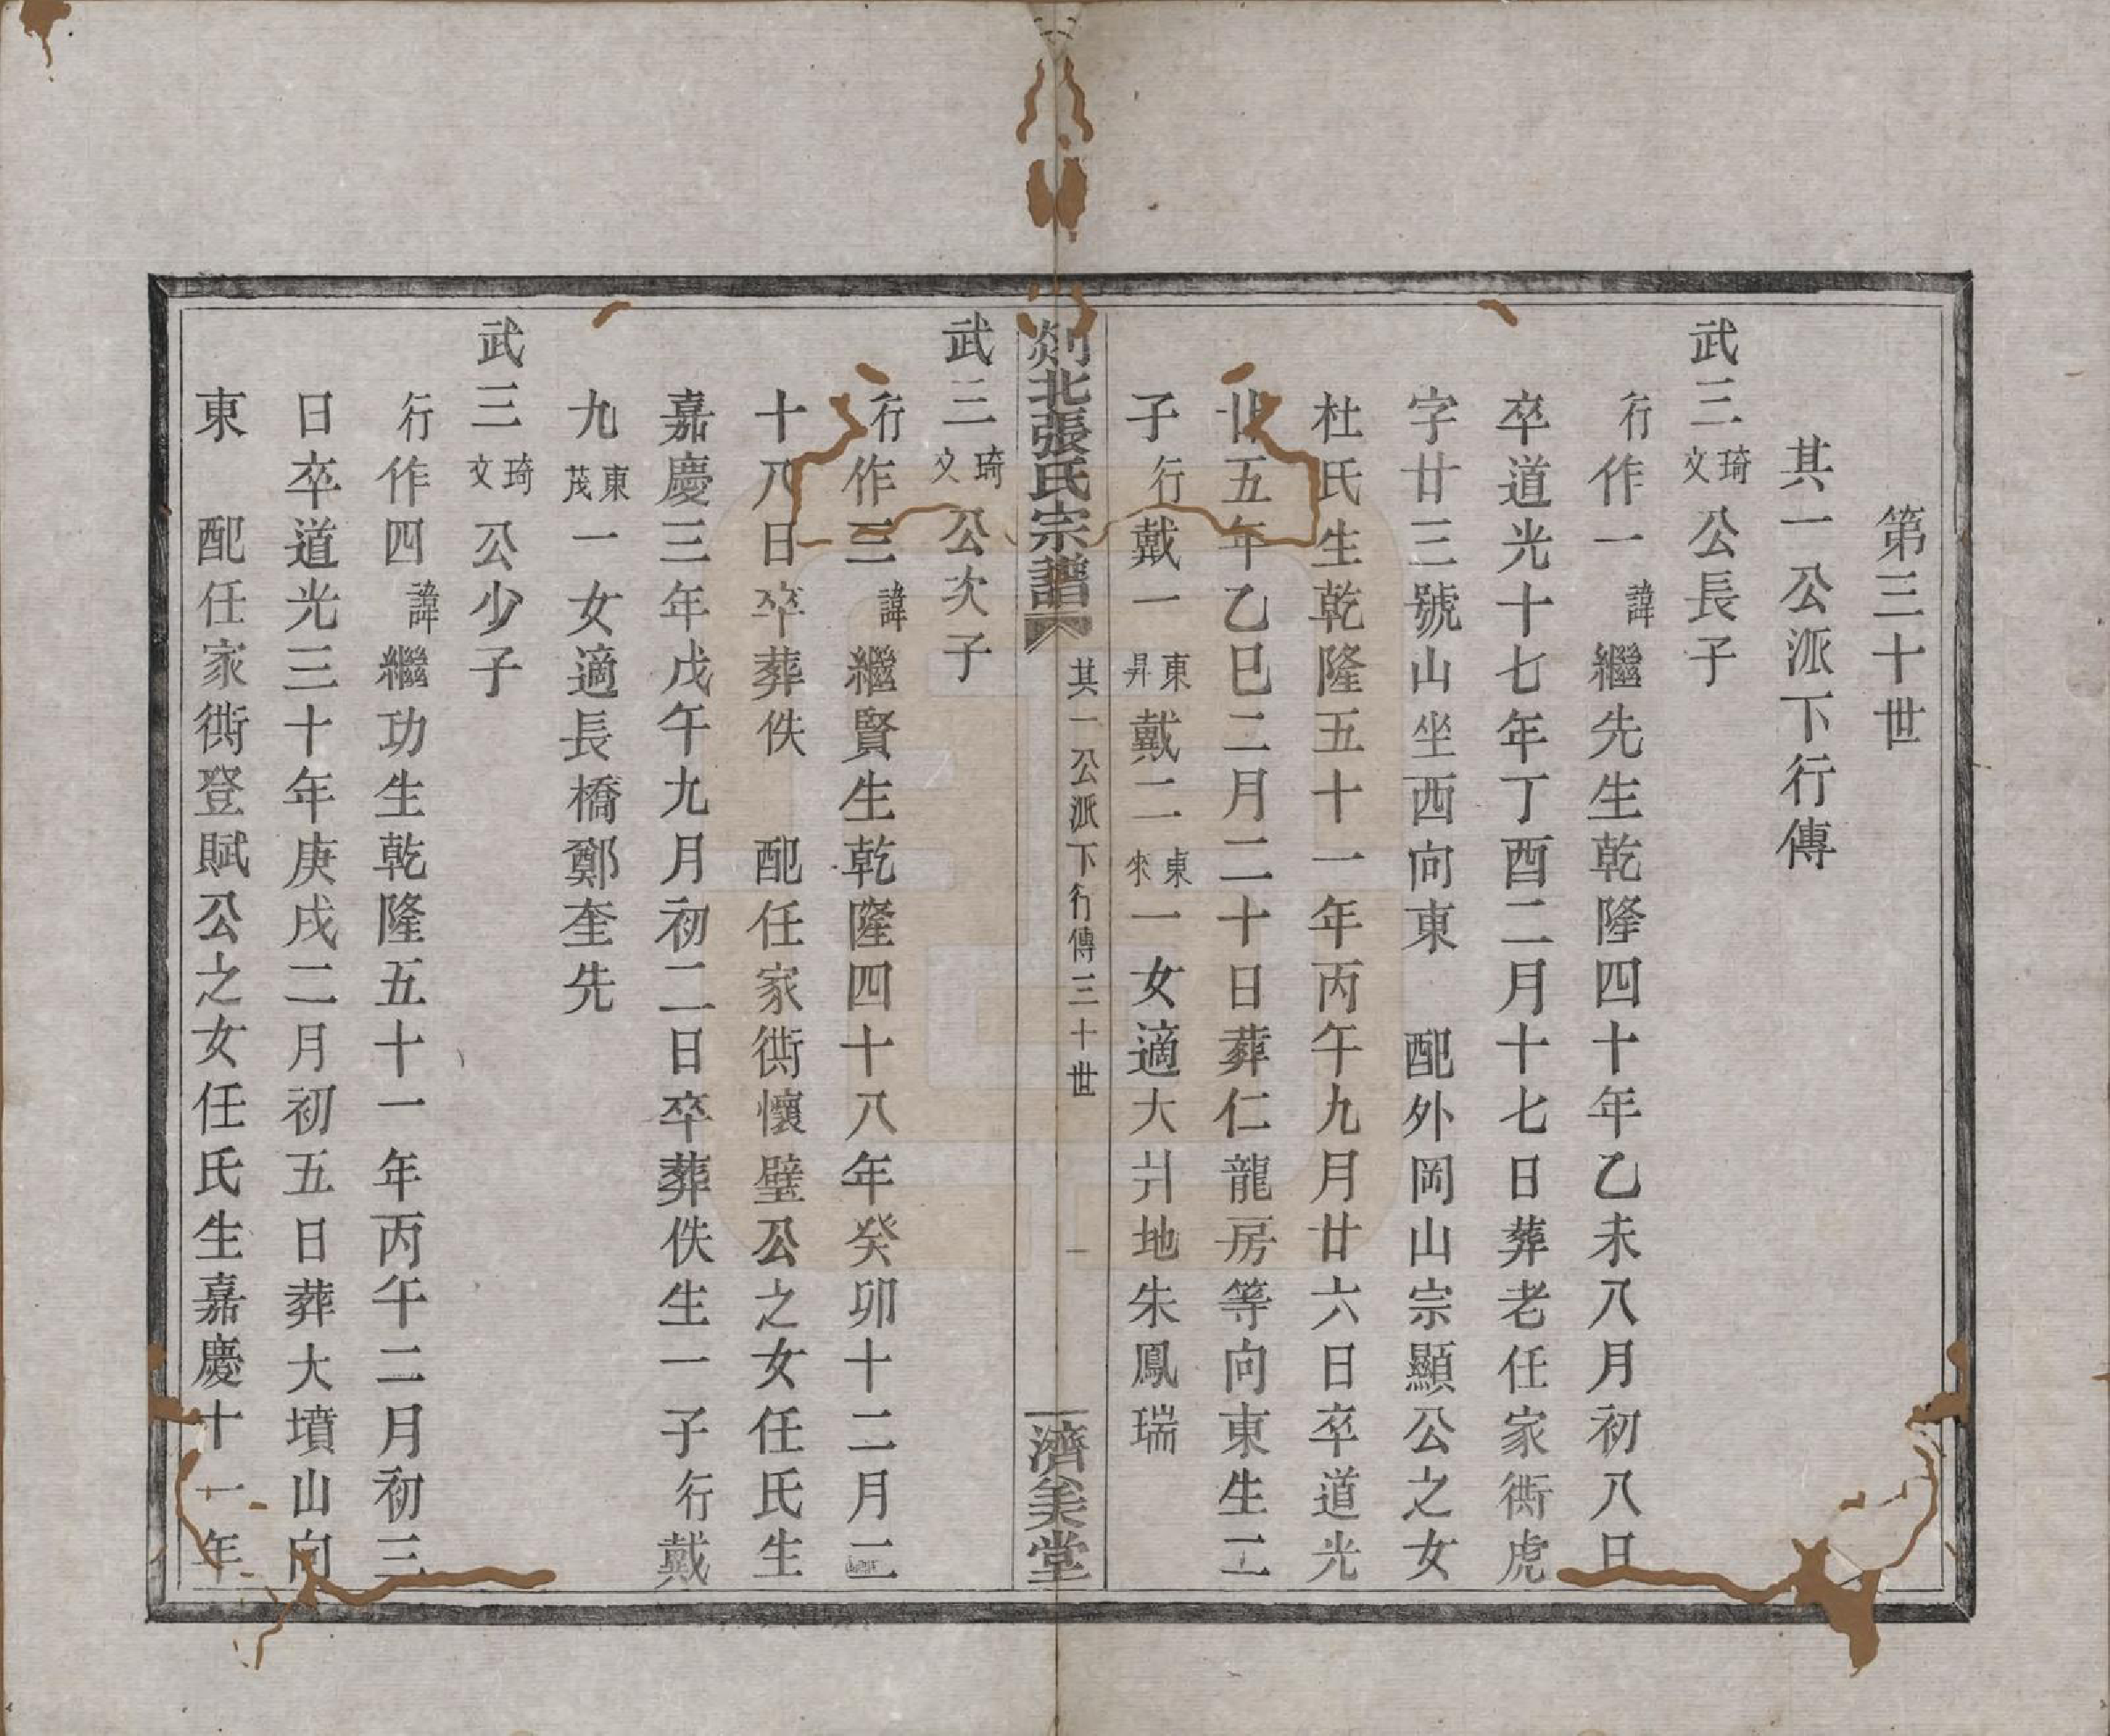 第三十世
其一公派下行傳
武三琦文公長子
行作一諱繼先生乾隆四十年乙未八月初八日
卒道光十七年丁酉二月十七日葬老任家衖虎
字廿三號山坐西向東　配外岡山宗顯公之女
杜氏生乾隆五十一年丙午九月廿六日卒道光
廿五年乙巳二月二十日葬仁龍房等向東生二
子行戴一東昇戴二東來一女適大爿地朱鳳瑞
剡北張氏宗譜　其一公派下行傳三十世　一　濟美堂
武三琦文公次子
行作三諱繼賢生乾隆四十八年癸卯十二月二
十八日卒葬佚　配任家衖懷璧公之女任氏生
嘉慶三年戊午九月初二日卒葬佚生一子行戴
九東茂一女適長橋鄭奎先
武三琦文公少子
行作四諱繼功生乾隆五十一年丙午二月初三
日卒道光三十年庚戌二月初五日葬大墳山向
東　配任家衖登賦公之女任氏生嘉慶十一年